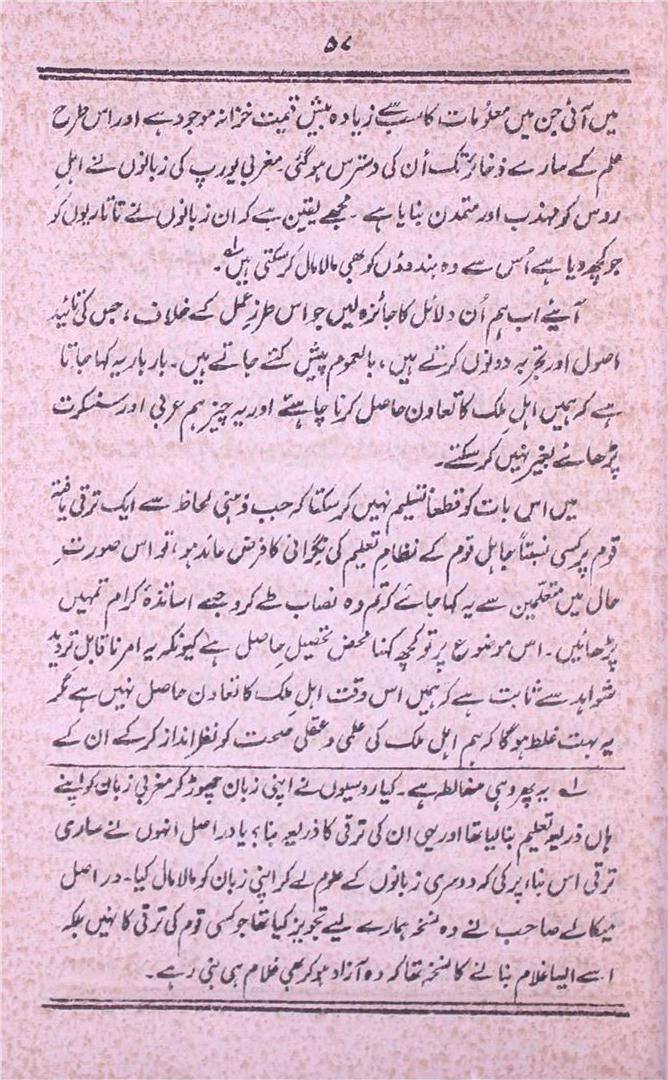 ۵۷
میں آئی جن میں معلومات کا سب سے زیادہ بیش قیمت خزانہ موجود ہے اور اس طرح
علم کے سارے ذخائر تک اُن کی دسترس ہوگئی۔ مغربی یورپ کی زبانوں نے اہلِ
روس کو مہذب اور متمدن بنایا ہے۔ مجھے یقین ہے کہ ان زبانوں نے تاتاریوں کو
جو کچھ دیا ہے اُس سے وہ ہندوؤں کو بھی مالا مال کر سکتی ہیں۱؎۔
آئیے اب ہم اُن دلائل کا جائزہ لیں جو اس طرزِ عمل کے خلاف، جس کی تائید
اصول اور تجربہ دونوں کرتے ہیں، بالعموم پیش کئے جاتے ہیں۔ بار بار یہ کہا جاتا
ہے کہ ہمیں اہل ملک کا تعاون حاصل کرنا چاہئے اور یہ چیز ہم عربی اور سنسکرت
پڑھائے بغیر نہیں کر سکتے۔
میں اس بات کو قطعاً تسلیم نہیں کر سکتا کہ جب ذہنی لحاظ سے ایک ترقی یافتہ
قوم پر کسی نسبتاً جاہل قوم کے نظامِ تعلیم کی نگرانی کا فرض عائد ہو، تو اس صورتِ
حال میں متعلمین سے یہ کہا جائے کہ تم وہ نصاب طے کرو جسے اساتذۂ کرام تمہیں
پڑھائیں۔ اس موضوع پر تو کچھ کہنا محض تحصیلِ حاصل ہے کیونکہ یہ امر ناقابل تردید
شواہد سے ثابت ہے کہ ہمیں اس وقت اہل ملک کا تعاون حاصل نہیں ہے مگر
یہ بہت غلط ہوگا کہ ہم اہل ملک کی علمی و عقلی صحت کو نظر انداز کر کے ان کے
۱؎ یہ پھر وہی مغالطہ ہے۔ کیا روسیوں نے اپنی زبان چھوڑ کر مغربی زبان کو اپنے
ہاں ذریعہ تعلیم بنا لیا تھا اور یہی ان کی ترقی کا ذریعہ بنا؟ یا در اصل انہوں نے ساری
ترقی اس بناء پر کی کہ دوسری زبانوں کے علوم لے کر اپنی زبان کو مالا مال کیا۔ در اصل
میکالے صاحب نے وہ نسخہ ہمارے لیے تجویز کیا تھا جو کسی قوم کی ترقی کا نہیں بلکہ
اسے ایسا غلام بنانے کا نسخہ تھا کہ وہ آزاد ہو کر بھی غلام ہی بنی رہے۔